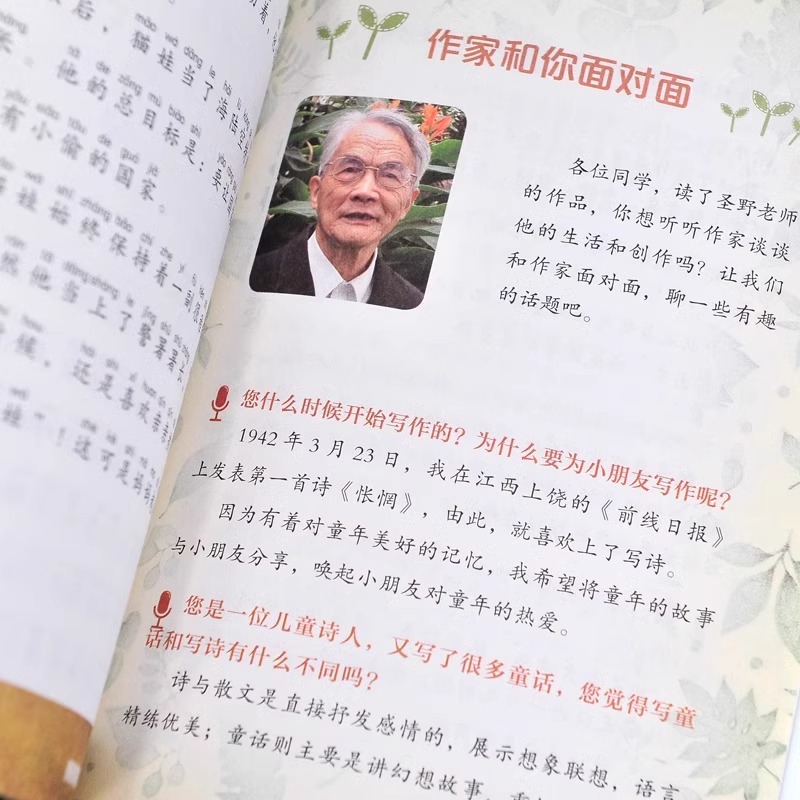 后，猫娃当了海陆空
māo wá dāng le hǎi lù
他的总目标是：要让
de zǒng mù biāo shì
有小偷的国家。
yǒu xiǎo tōu de guó jiā
娃始终保持着一副
wá shǐ zhōng bǎo chí zhe yí
然他当上了警署署
rán tā dāng shàng le jǐng shǔ shǔ
还是喜欢
hái shì xǐ huan
娃"！这可是
作家和你面对面
各位同学，读了圣野老师
的作品，你想听听作家谈谈
他的生活和创作吗？让我们
和作家面对面，聊一些有趣
的话题吧。
您什么时候开始写作的？为什么要为小朋友写作呢？
1942 年 3 月 23 日，我在江西上饶的《前线日报》
上发表第一首诗《怅惘》，由此，就喜欢上了写诗。
因为有着对童年美好的记忆，我希望将童年的故事
与小朋友分享，唤起小朋友对童年的热爱。
您是一位儿童诗人，又写了很多童话，您觉得写童
话和写诗有什么不同吗？
诗与散文是直接抒发感情的，展示想象联想，语言
精练优美；童话则主要是讲幻想故事，